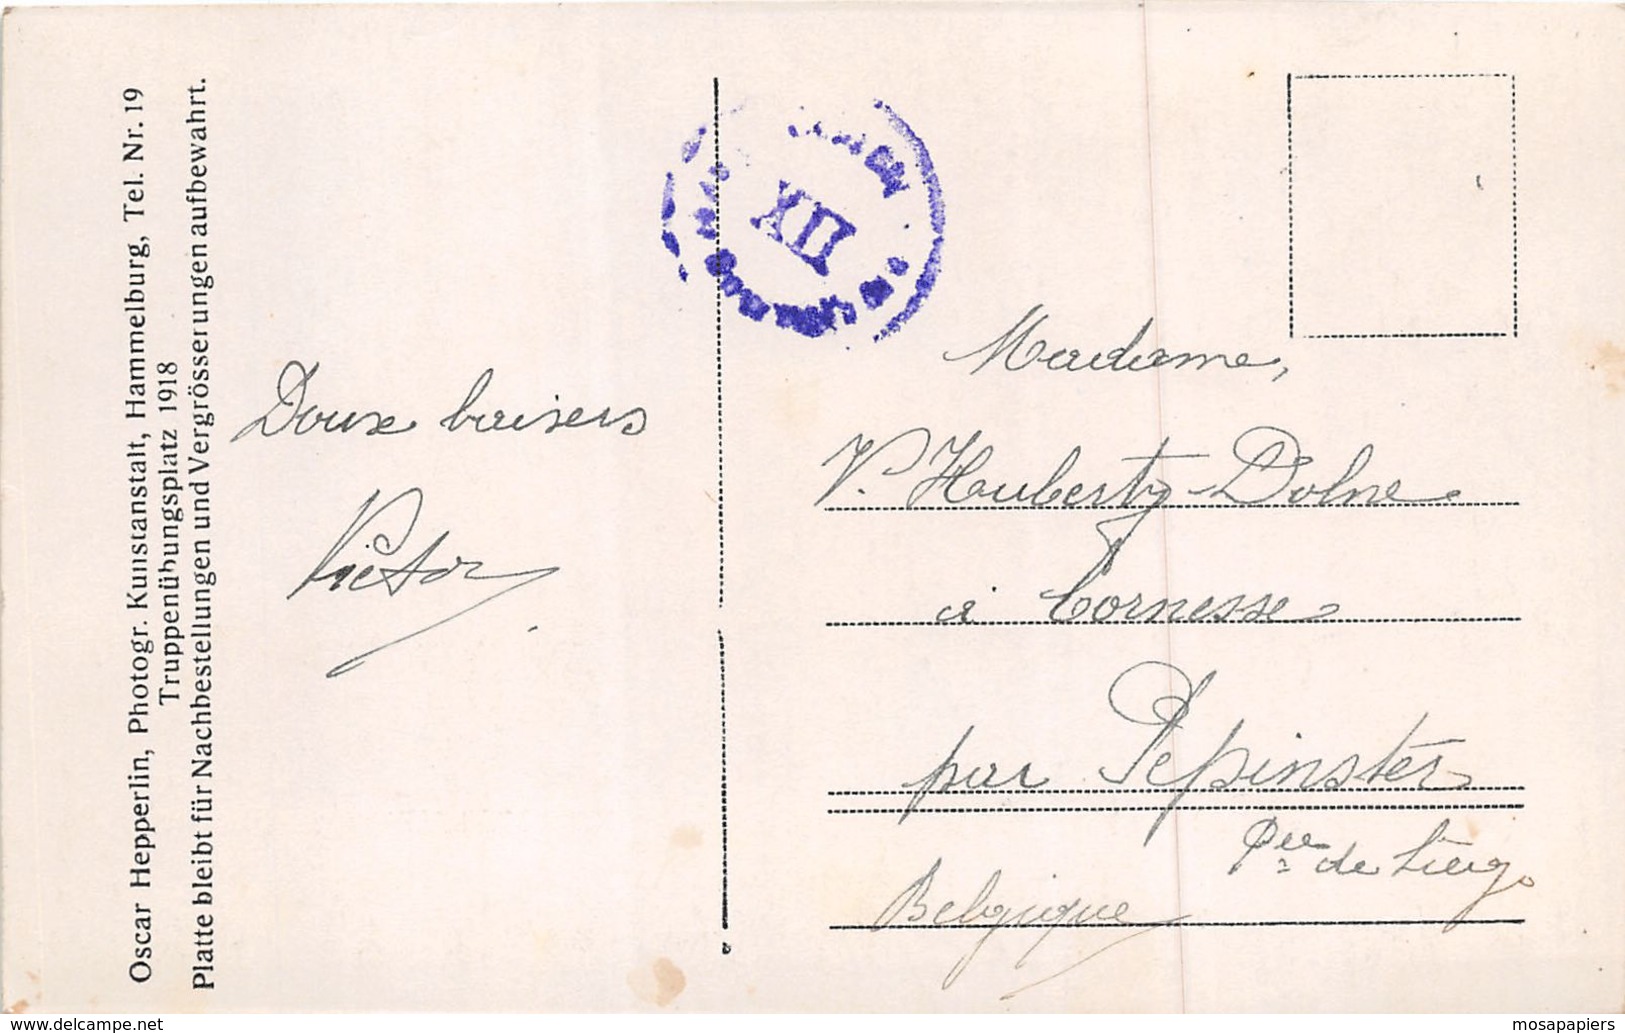 Oscar Hepperlin, Photogr. Kunstanstalt, Hammelburg, Tel. Nr. 19
Truppenübungsplatz 1918
Platte bleibt für Nachbestellungen und Vergrösserungen aufbewahrt.
XII
Doux baisers
Victor
Madame,
V. Huberty-Dolne
à Cornesse
par Pepinster
Pce de Liège
Belgique
www.delcampe.net
mosapapiers